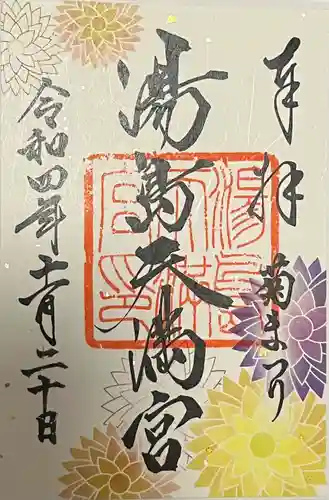 奉拝
菊まつり
湯島天満宮
令和四年十一月二十日